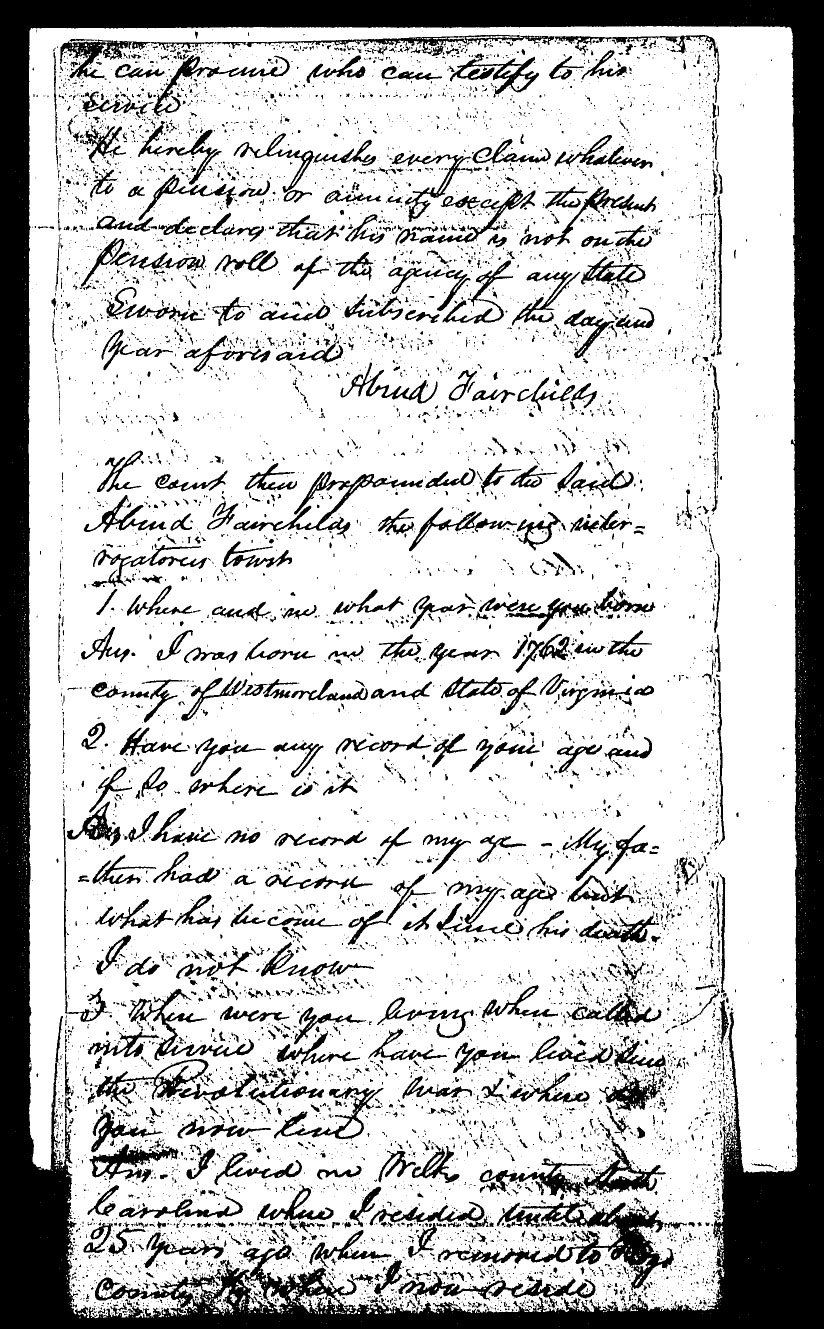 he can procure who can testify to his
service
He hereby relinquishes every claim whatever
to a pension or annuity except the present
and declares that his name is not on the
Pension roll of the agency of any State
Sworn to and Subscribed the day and
year aforesaid
Abiud Fairchilds
The court then propounded to the Said
Abiud Fairchilds the following inter=
rogatories towit
1. Where and in what year were you born
Ans. I was born in the year 1762 in the
county of Westmoreland and State of Virginia
2. Have you any record of your age and
if So where is it
Ans I have no record of my age - My fa=
=ther had a record of my age but
what has become of it Since his death.
I do not know
3 When were you living when called
into Service where have you lived Since
the Revolutionary War & where do
you now live
Ans. I lived in Wilks county North
Carolina where I resided until about
25 years ago when I removed to
county Ky where I now reside